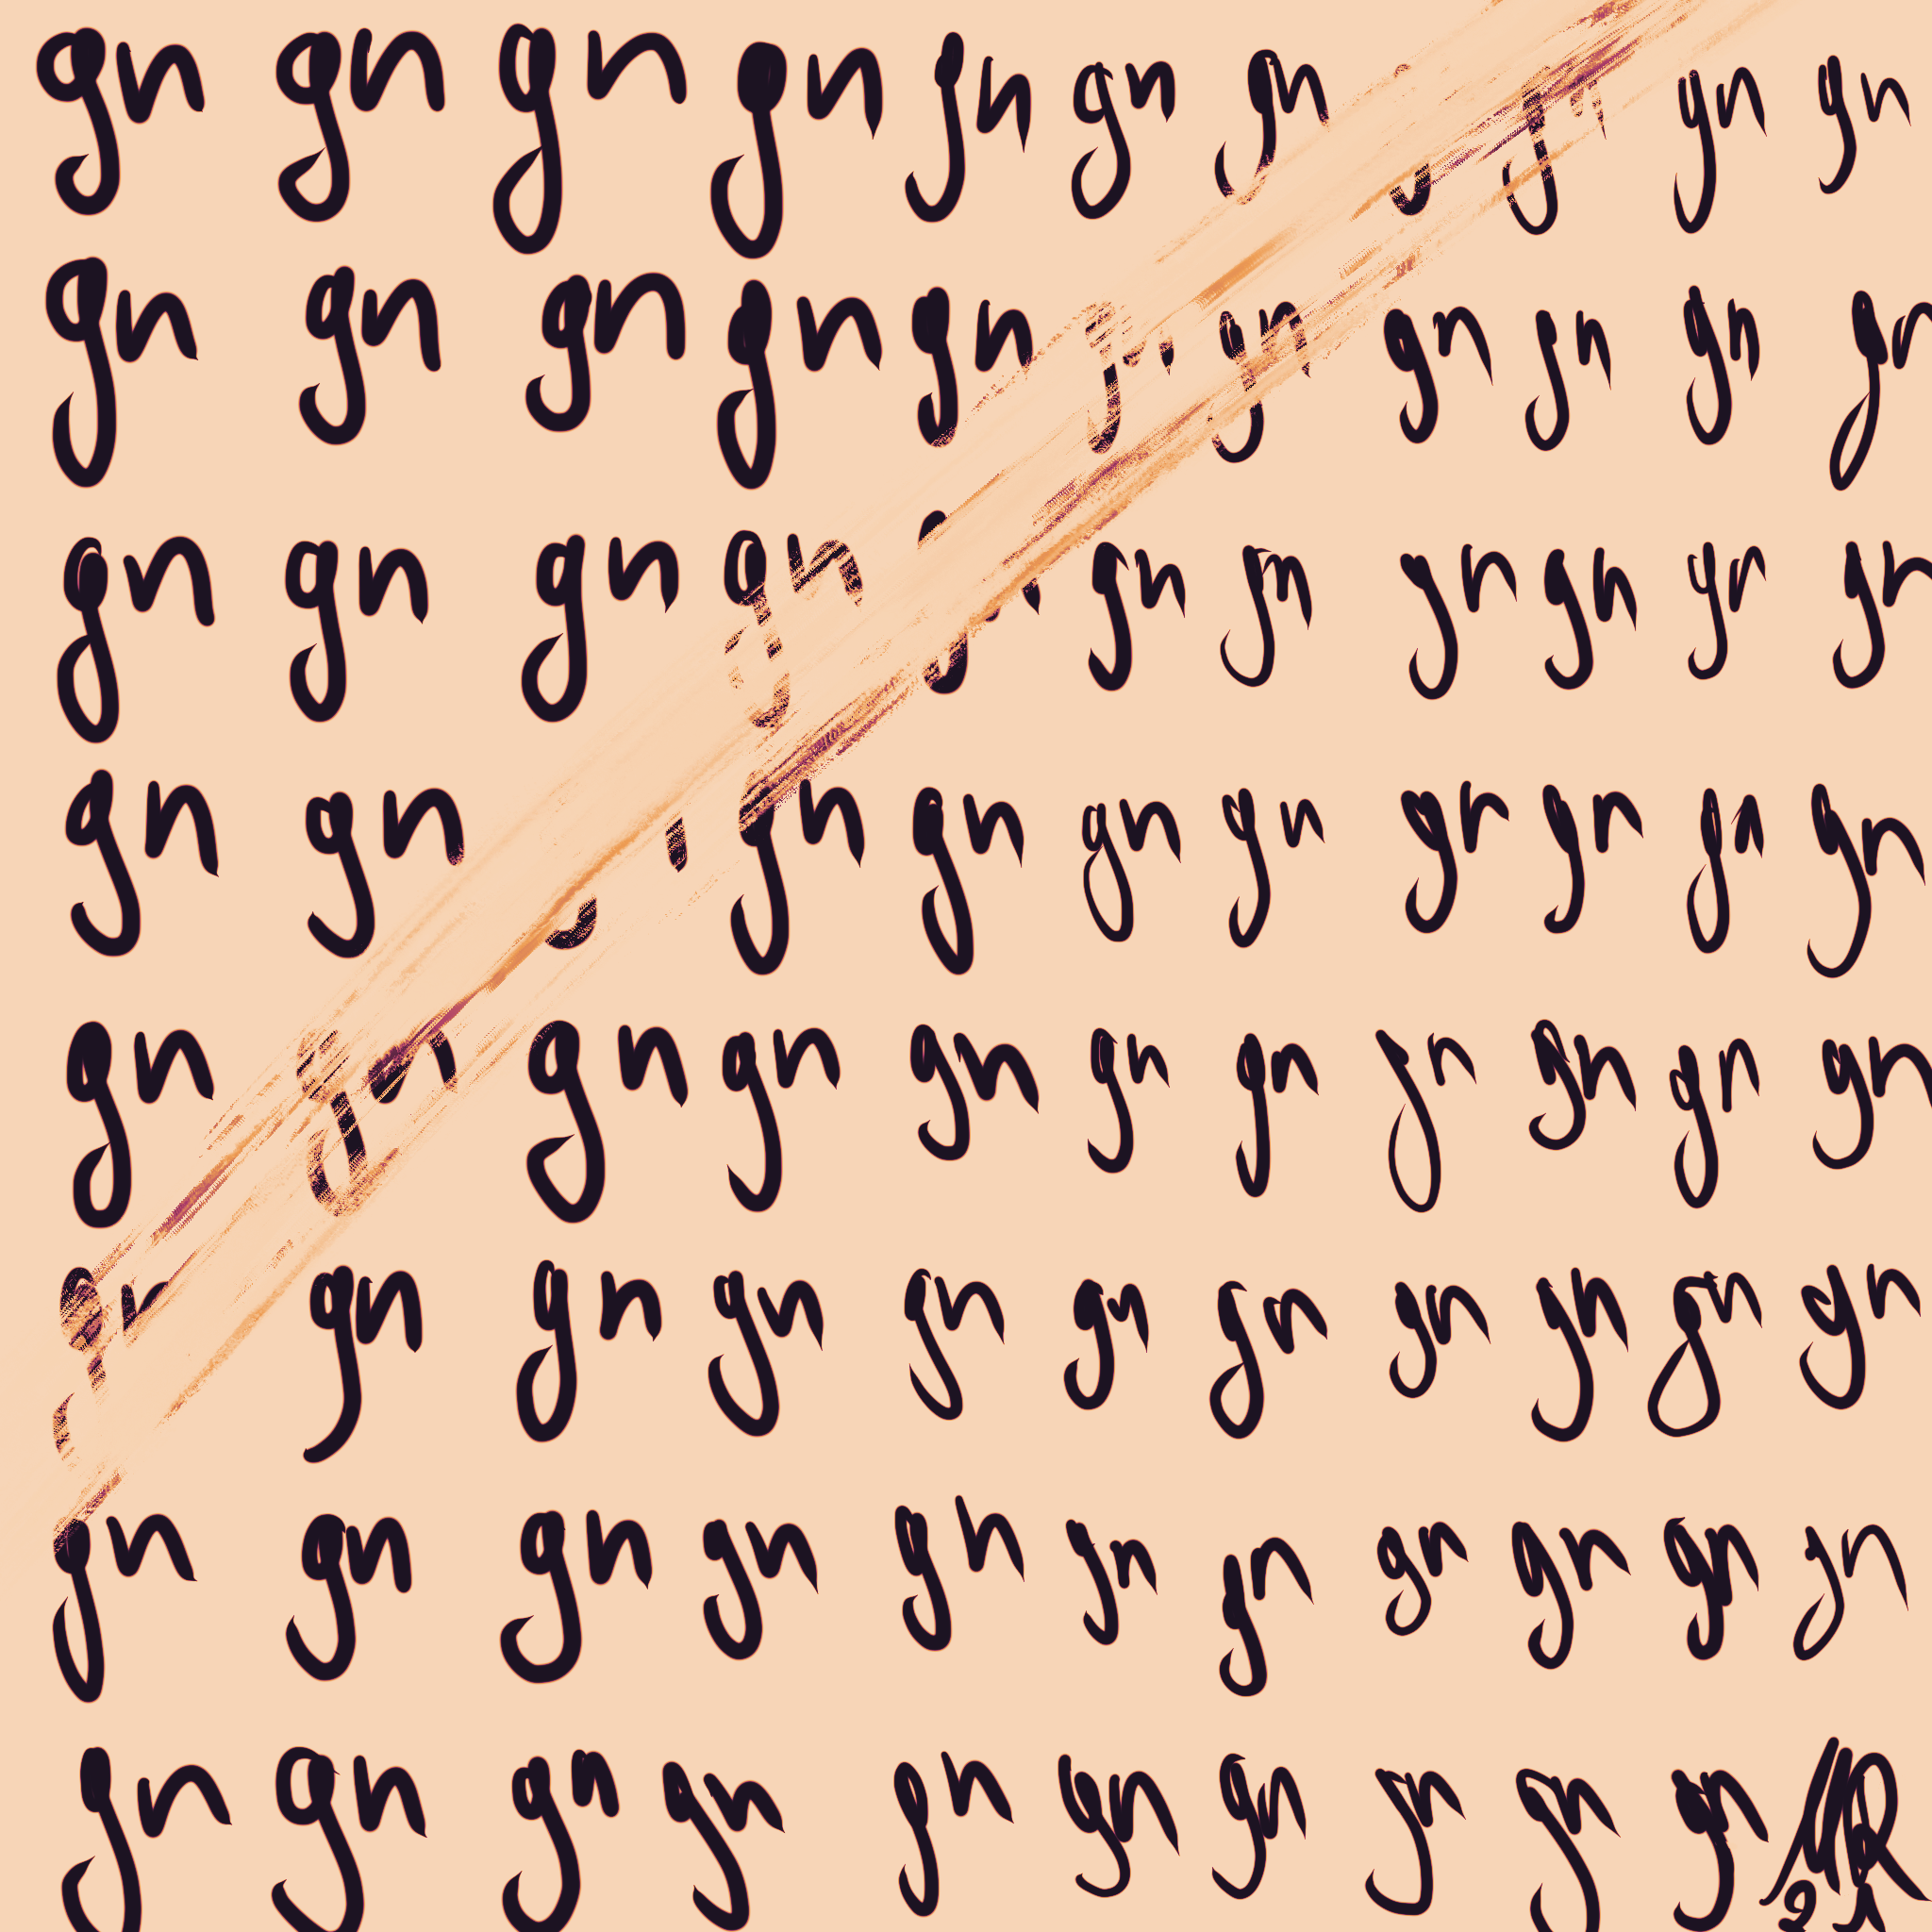 gn gn gn gn gn gn gn gn gn gn
gn gn gn gn gn gn gn gn gn gn gn
gn gn gn gn gn gn gn gn gn gn
gn gn gn gn gn gn gn gn gn gn
gn gn gn gn gn gn gn gn gn gn gn
gn gn gn gn gn gn gn gn gn gn gn
gn gn gn gn gn gn gn gn gn gn gn
gn gn gn gn gn gn gn gn gn gn